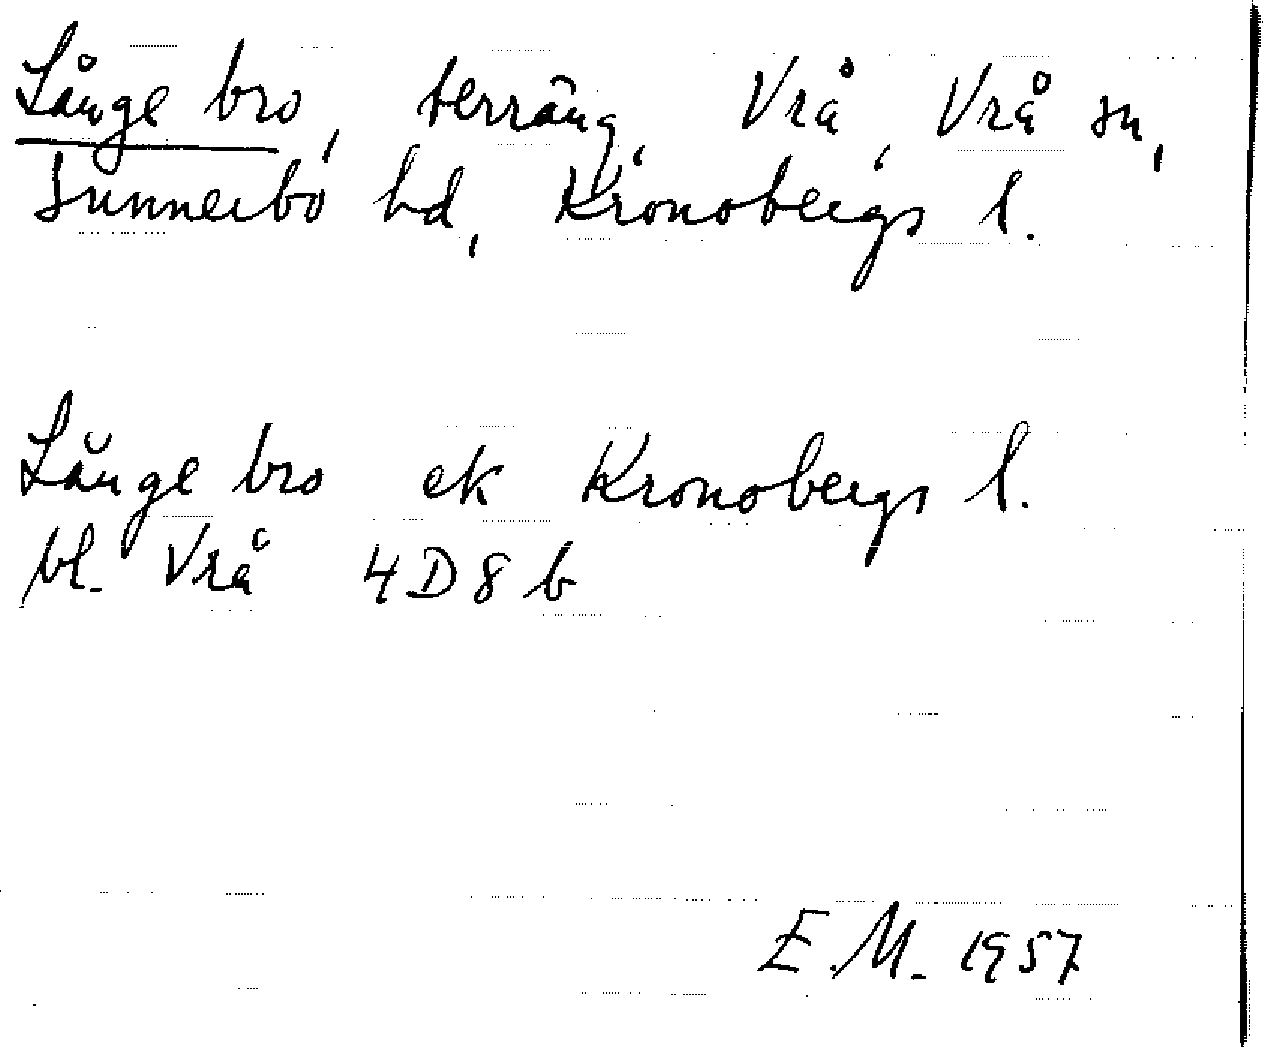 Långe bro, terräng, Vrå, Vrå sn,
Sunnerbo hd, Kronobergs l.
Långe bro ek Kronobergs l.
bl. Vrå 4D8b
E.M. 1957